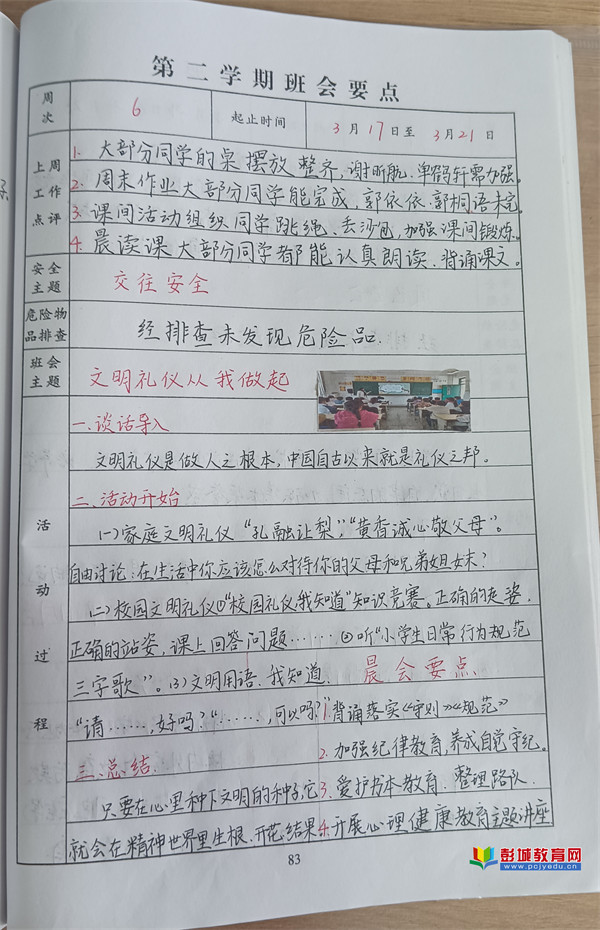 第二学期班会要点
周次 6 起止时间 3月17日至3月21日
上周工作点评
1. 大部分同学的桌摆放整齐,谢昕航、单鹤轩需加强。
2. 周末作业大部分同学能完成,郭依依、郭桐语未完
3. 课间活动组织同学跳绳、丢沙包,加强课间锻炼。
4. 晨读课大部分同学都能认真朗读、背诵课文。
安全主题 交往安全
危险物品排查 经排查未发现危险品.
班会主题 文明礼仪从我做起
活动过程
一、谈话导入
文明礼仪是做人之根本,中国自古以来就是礼仪之邦。
二、活动开始
(一)家庭文明礼仪“孔融让梨”,“黄香诚心敬父母”。
自由讨论:在生活中你应该怎么对待你的父母和兄弟姐妹?
(二)校园文明礼仪①“校园礼仪我知道”知识竞赛。正确的走姿,
正确的站姿,课上回答问题……②听“小学生日常行为规范
三字歌”。(3)文明用语、我知道.
“请……,好吗?”“……,可以吗?”
三、总结.
只要在心里种下文明的种子,它
就会在精神世界里生根、开花、结果
晨会要点
1. 背诵落实《守则》《规范》
2. 加强纪律教育,养成自觉守纪。
3. 爱护书本教育、整理路队.
4. 开展心理健康教育主题讲座
83
彭城教育网
www.pcjyedu.cn